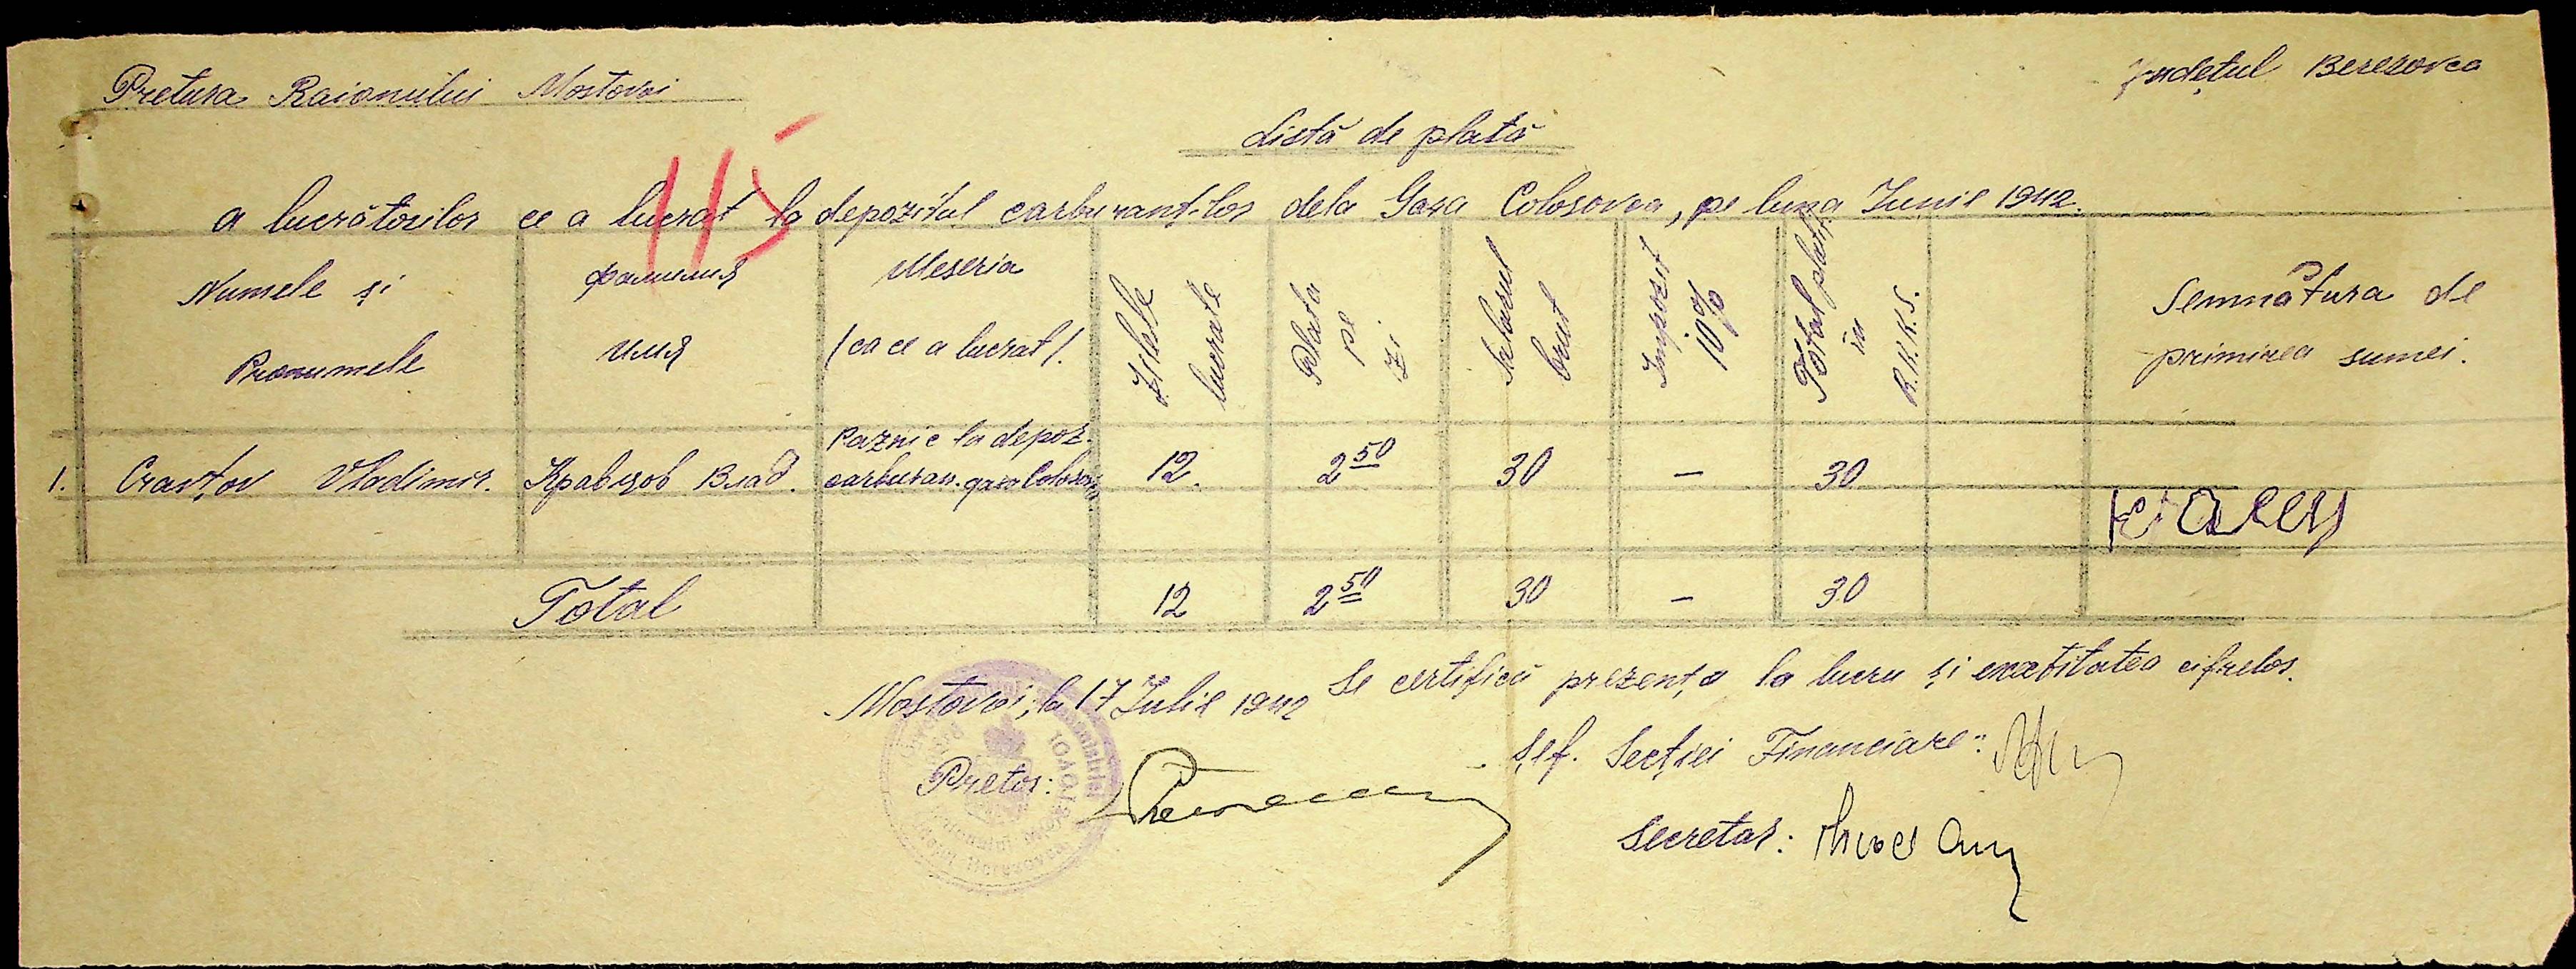 Pretura Raionului Mostovoi
Județul Beresovca
Listă de plată
115
a lucrătorilor ce a lucrat la depozitul carburanț-lor dela Gara Colosovca, pe luna Iunie 1942.
Numele și Pronumele
фамилия имя
Meseria /ca ce a lucrat/.
Zilele lucrate
Plata pe zi
Salarul brut
Impozit 10%
Total plătit in R.K.K.S.
Semnătura de primirea sumei.
1. Cravțov Vladimir. Кравцов Влад. Paznic la depoz. carburan. gara Colosov 12. 2 50 30 — 30
Total 12 2 50 30 — 30
Mostovoi, la 17 Iulie 1942
Se certifică prezența la lucru și exactitatea cifrelor.
Pretor:
Șef. Secției Financiare:
Secretar: